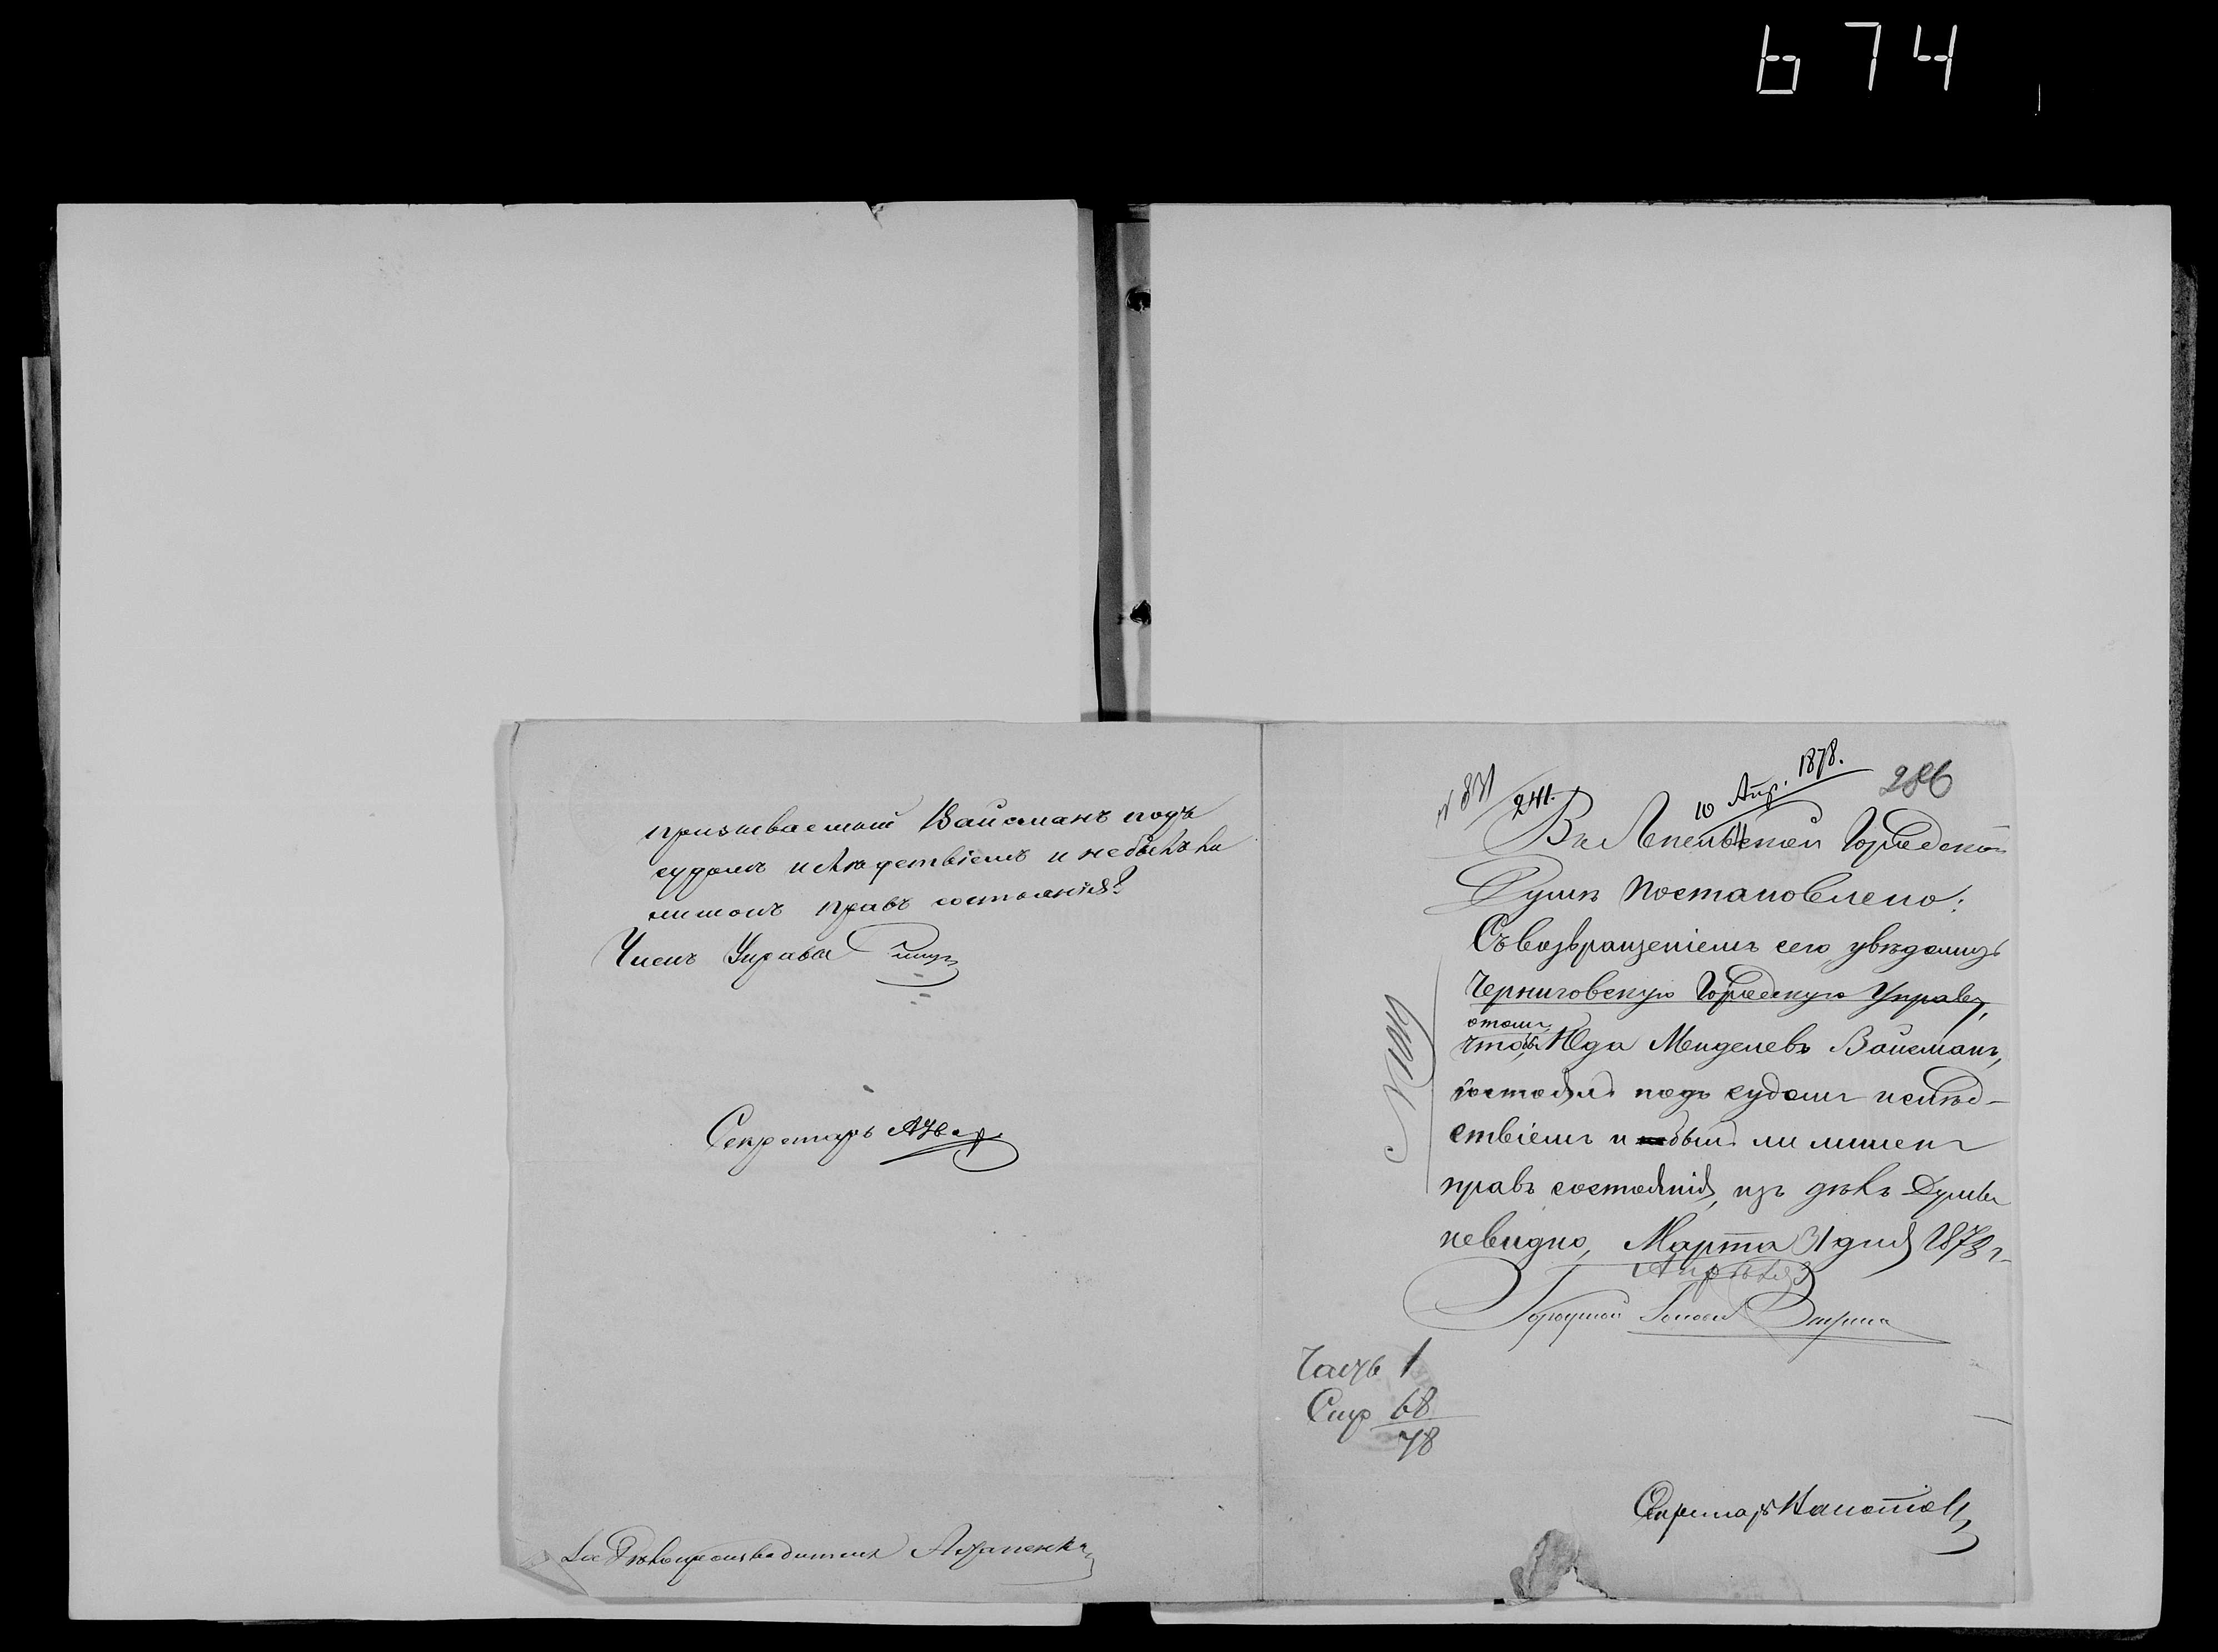 674
призываемый Вайсманъ подъ
судомъ и слѣдствіемъ и не былъ ли
лишонъ правъ состоянія?
Членъ Управы
Секретарь
За Дѣлопроизводителя
№ 831
241.
10 Апр. 1878.
286
Въ Лепельской Городской
Думѣ Постановлено:
Съ возвращеніемъ сего увѣдомить
Черниговскую Городскую Управу,
отомъ
что Юда Менделевъ Вайсманъ,
состоялъ подъ судомъ и слѣд-
ствіемъ и былъ ли лишенъ
правъ состоянія, изъ дѣлъ Думы
невидно, Марта 31 дня 1878 г.
Апрѣля 3
Городской Голова
Часть 1
Стр 68
78
Секретарь